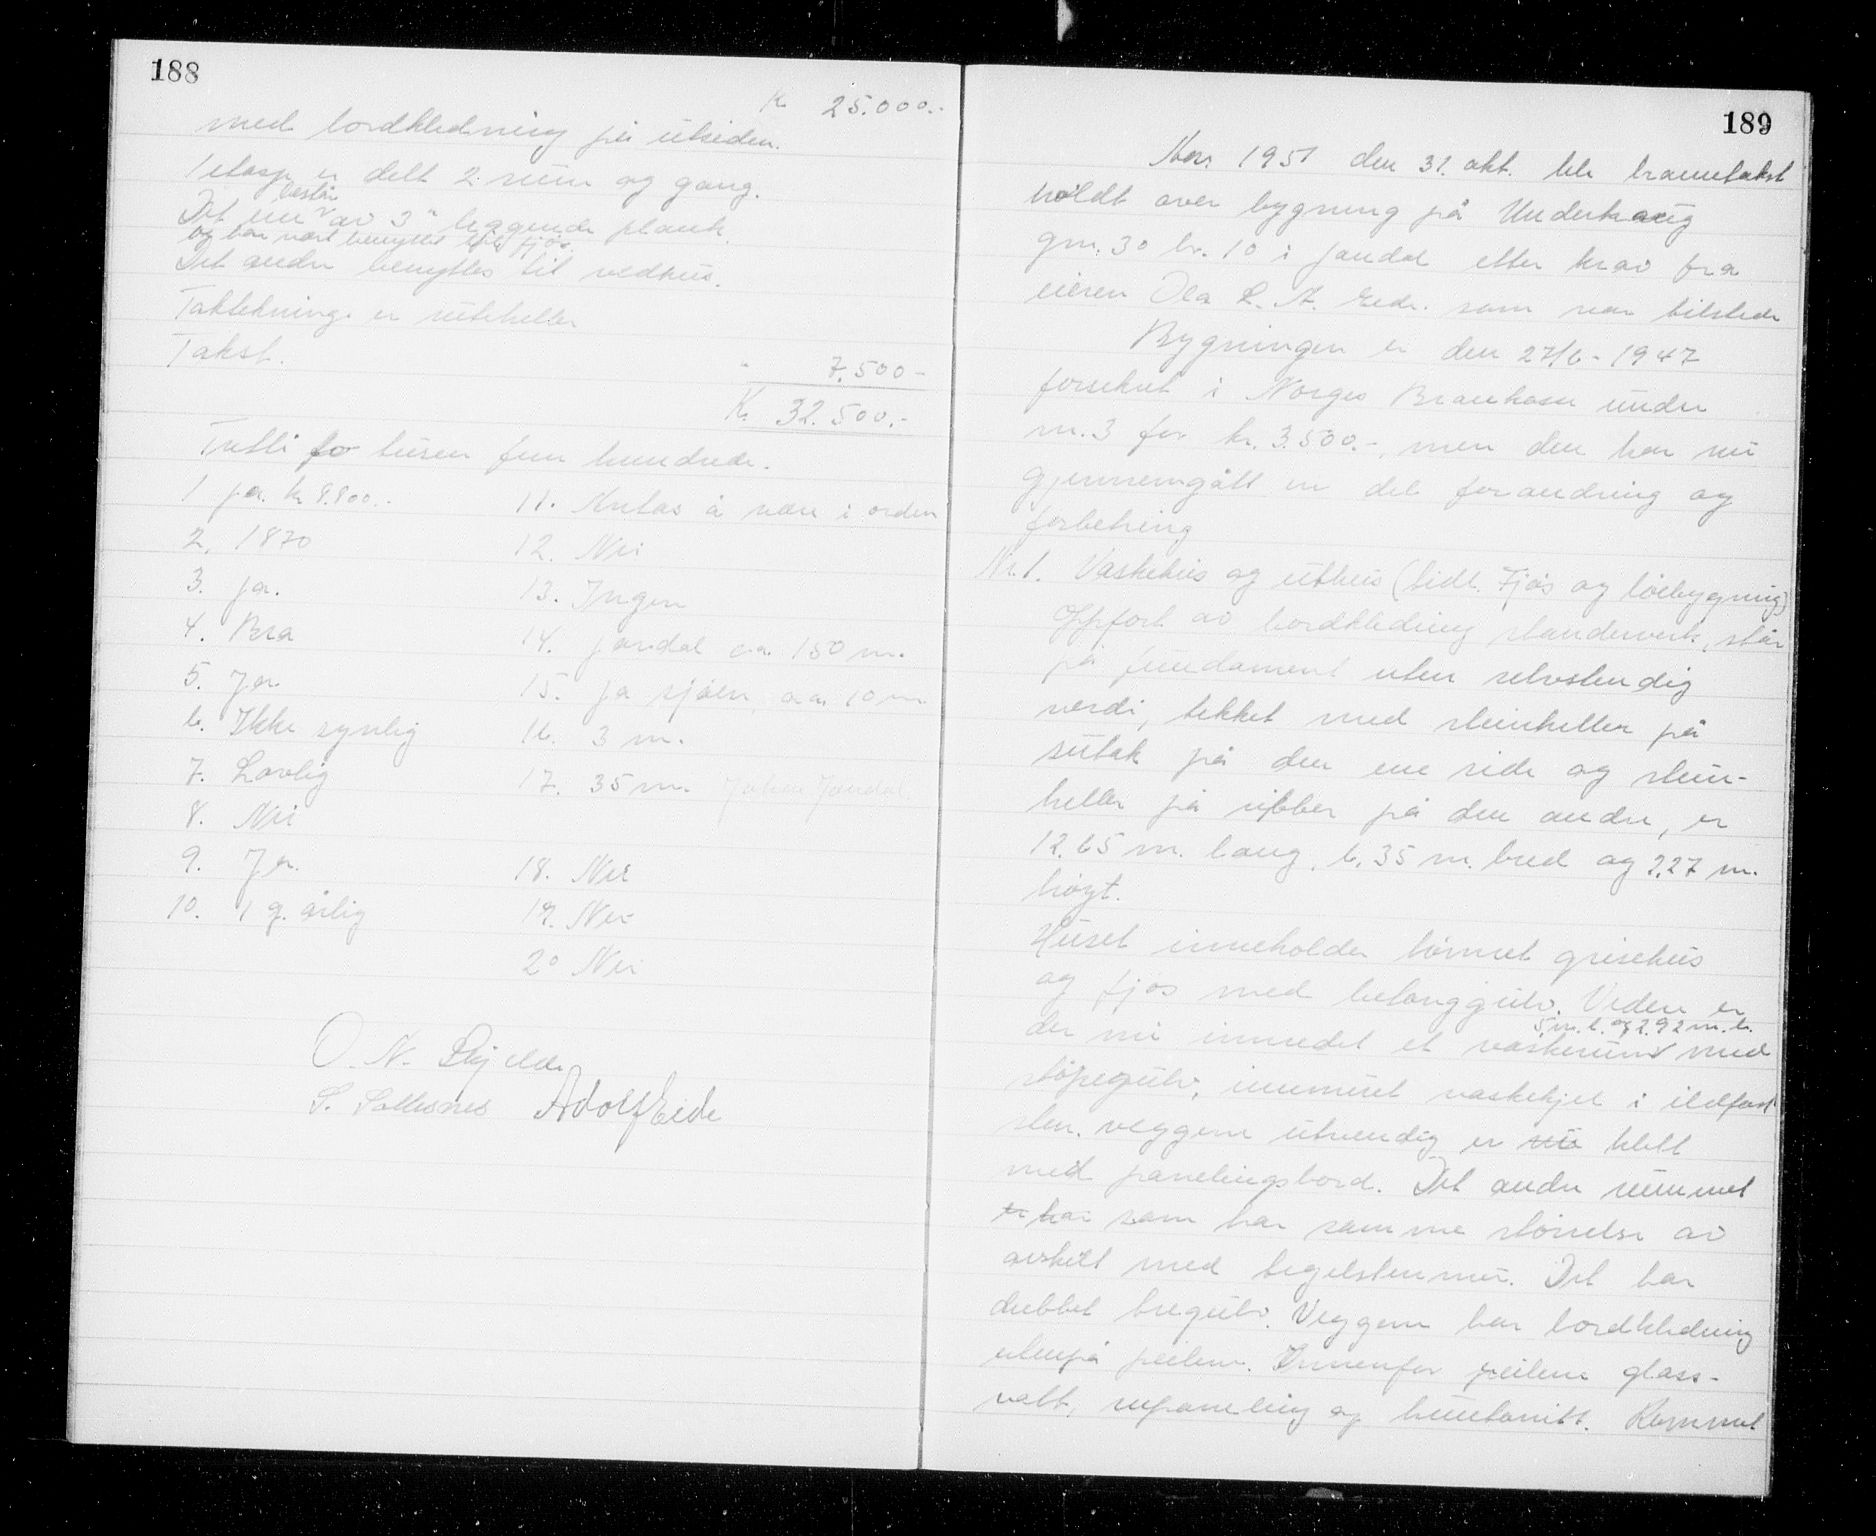 188
Kr. 25.000.-
med bordkledning på utsiden.
1 etasje er delt 2 rum og gang.
består
Det ene av 3" leggende plank.
og har vært benyttet til fjøs.
Det andre benyttes til vedhus.
Taktekninge er
Takst.
" 7.500-
Kr. 32.500.-
Tretti to tusen fem hundrede.
1 ja. kr 8.800.-
2. 1870
3. ja.
4. Bra
5. Ja
6. Ikke synlig
7. Lovlig
8. Nei
9. Ja.
10. 1 g. årlig
11. Antas å være i orden
12. Nei
13. Ingen
14. Jondal ca. 150 m.
15. ja sjøen, ca. 10 m.
16. 3 m.
17. 35 m. Jondal
18. Nei
19. Nei
20 Nei
O. N.
S. Sollesnes Adolf Eide
189
1951 den 31. okt. ble branntakst
holdt over bygning på Underhaug
gnr. 30 br. 10 i Jondal etter krav fra
eieren Ola L. A. Eide. som var tilstede
Bygningen er den 27/6-1947
forsikret i Norges Brankasse under
nr. 3 for kr. 3.500.-, men den har nu
gjennemgått en del forandring og
forbetring
Nr. 1. Vaskehus og uthus (tidl. Fjøs og løebygning)
Oppført av bordkledning standerverk, står
på fundament uten selvstendig
verdi, tekket med steinheller på
sutak på den ene side og stein-
heller på ribber på den andre, er
12.65 m. lang, 6.35 m. bred og 2.27 m.
høyt.
Huset inneholder tømret grisehus
og fjøs med betonggulv. Viden er
5 m. l. og 2.92 m. b.
der nu innredet et vaskerum med
støpegulv, innmuret vaskekjel i ildfast
sten. veggene utvendig er nu kledt
med panelingsbord. Det andre rummet
er har som har samme størrelse av
avskilt med tegelstenmur. Det har
dubbet tregulv. Veggene har bordkledning
utenpå peilene. Innenfor peilene glass-
vatt, rupaneling og huntonitt. Rummet